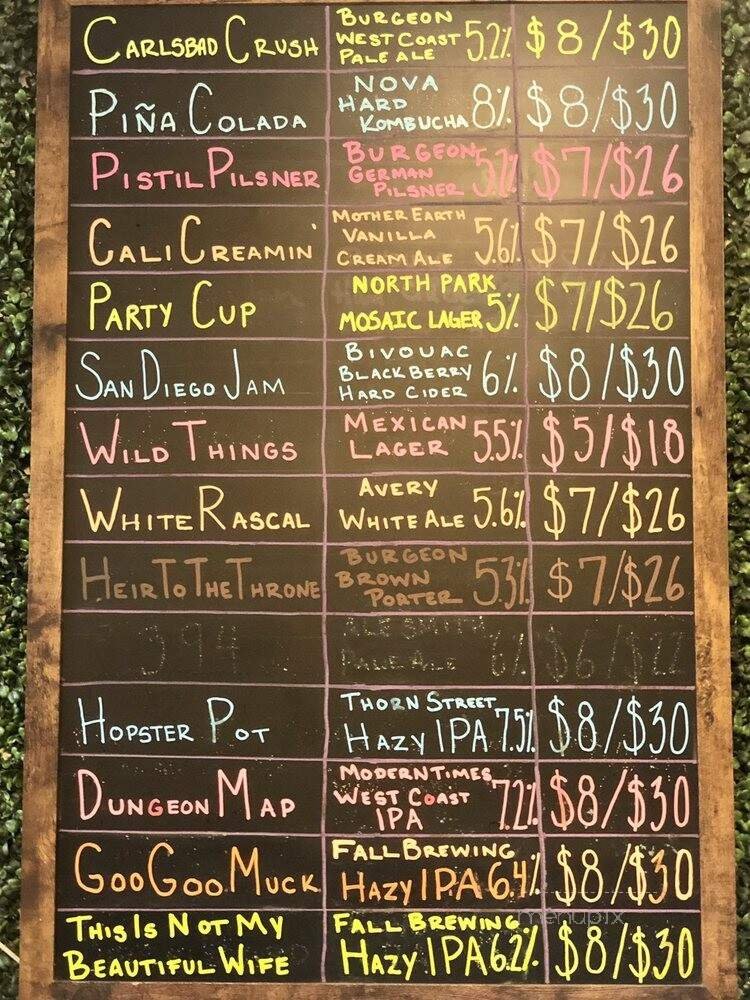 CARLSBAD CRUSH BURGEON WEST COAST PALE ALE 5.2% $8/$30
PIÑA COLADA NOVA HARD KOMBUCHA 8% $8/$30
PISTIL PILSNER BURGEON GERMAN PILSNER 5.2% $7/$26
CALI CREAMIN' MOTHER EARTH VANILLA CREAM ALE 5.6% $7/$26
PARTY CUP NORTH PARK MOSAIC LAGER 5% $7/$26
SAN DIEGO JAM BIVOUAC BLACKBERRY HARD CIDER 6% $8/$30
WILD THINGS MEXICAN LAGER 5.5% $5/$18
WHITE RASCAL AVERY WHITE ALE 5.6% $7/$26
HEIR TO THE THRONE BURGEON BROWN PORTER 5.3% $7/$26
394 ALESMITH PALE ALE 6% $6/$22
HOPSTER POT THORN STREET HAZY IPA 7.5% $8/$30
DUNGEON MAP MODERN TIMES WEST COAST IPA 7.2% $8/$30
GOO GOO MUCK FALL BREWING HAZY IPA 6.4% $8/$30
THIS IS NOT MY BEAUTIFUL WIFE FALL BREWING HAZY IPA 6.2% $8/$30
menupix